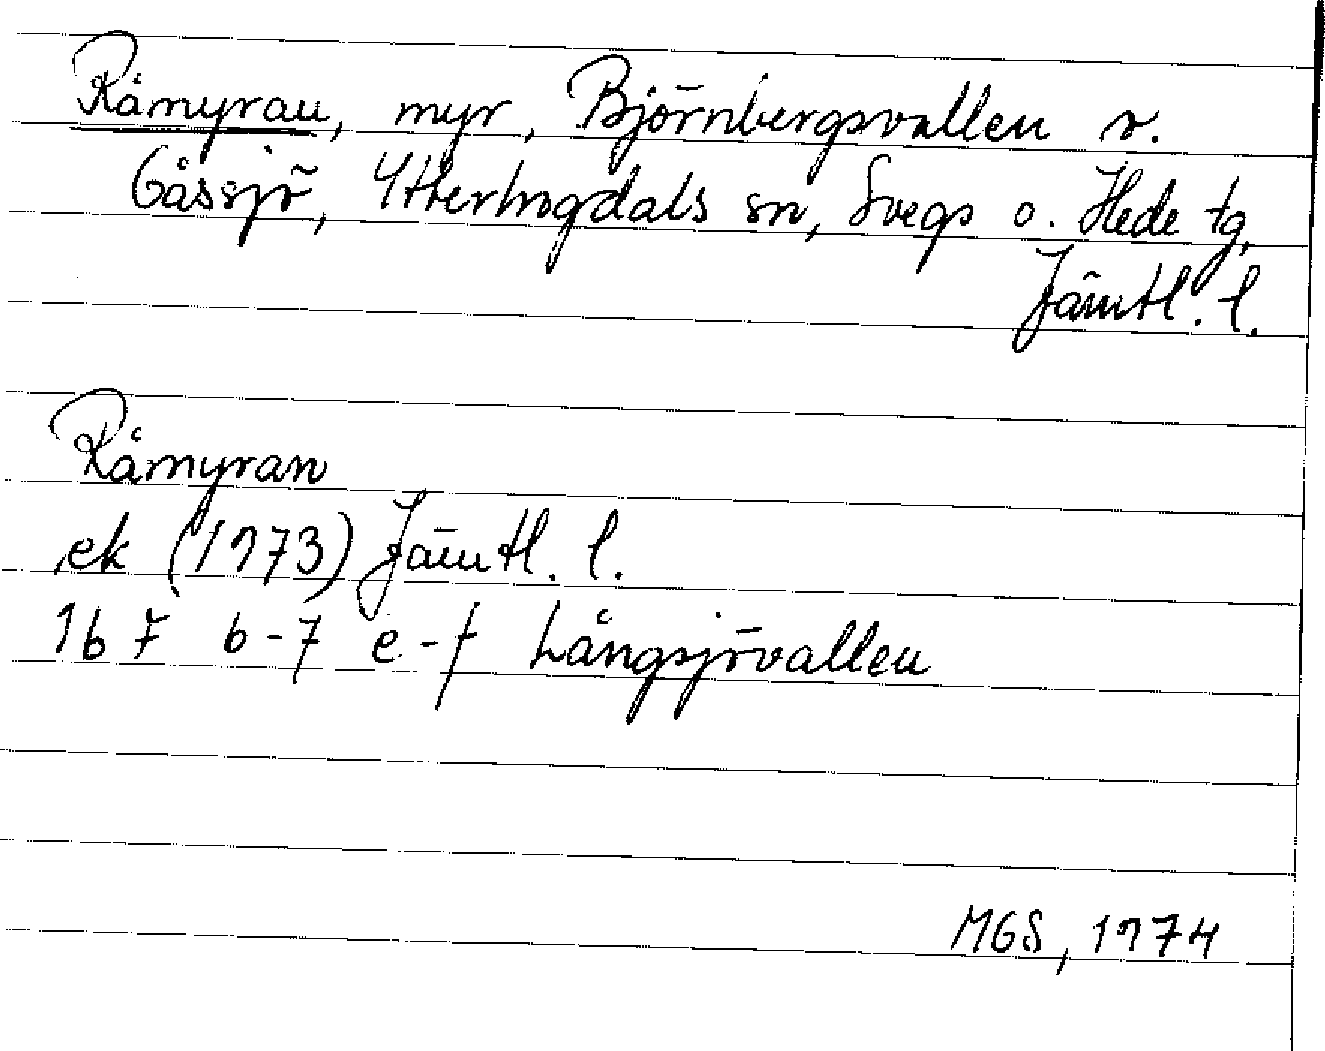 Råmyran, myr, Björnbergsvallen s.
Gåssjö, Ytterhogdals sn, Svegs o. Hede tg,
Jämtl. l.
Råmyran
ek (1973) Jämtl. l.
16 F 6-7 e-f Långsjövallen
MGS, 1974